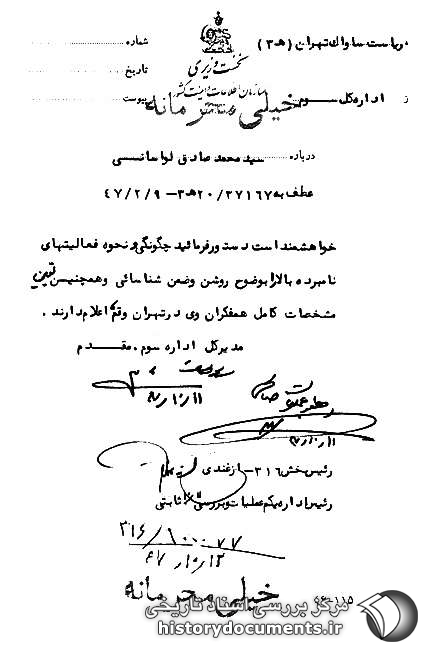 ریاست ساواک تهران (هـ ۳) شماره
نخست وزیری
تاریخ
سازمان اطلاعات و امنیت کشور
از اداره کل سوم پیوست
خیلی محرمانه
درباره سید محمد صادق لواسانی
عطف به ۲۰/۳۷۱۶۷هـ ۳ - ۴۷/۲/۹
خواهشمند است دستور فرمائید چگونگی و نحوه فعالیتهای
نامبرده بالا را بوضوح روشن وضمن شناسائی وهمچنین تعیین
مشخصات کامل همفکران وی در تهران وقم اعلام دارند .
مدیر کل اداره سوم . مقدم
رئیس بخش ۳۱۶ - ازغندی
رئیس اداره یکم عملیات و بررسی ثابتی
۳۱۶/۱۰۰۰۷۷
خیلی محرمانه
۵۶-۱۱۵
مرکز بررسی اسناد تاریخی
historydocuments.ir